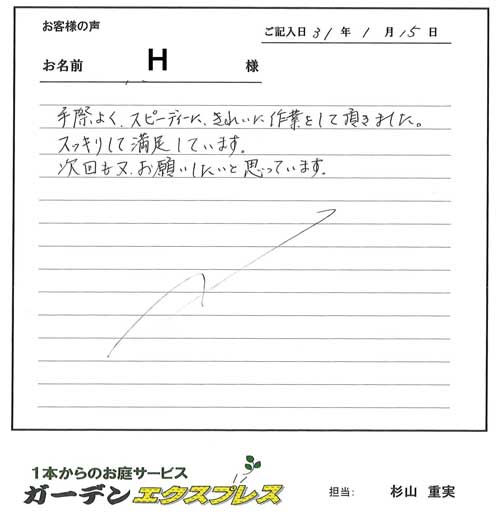 お客様の声
ご記入日 31 年 1 月 15 日
お名前 H 様
手際よく、スピーディーに、きれいに作業をして頂きました。
スッキリして満足しています。
次回も又、お願いしたいと思っています。
1本からのお庭サービス
ガーデンエクスプレス
担当: 杉山 重実